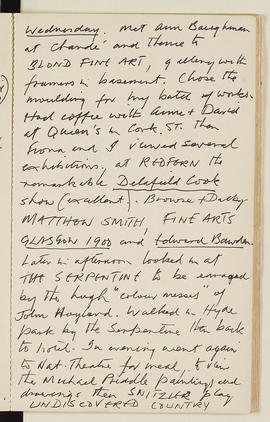 Wednesday. Met Ann Baughman
at Chandé and thence to
BLOND FINE ART, gallery with
framers in basement. Chose the
moulding for my batch of works.
Had coffee with Anne + David
at Queen's in Cork St. Then
Fiona and I viewed several
exhibitions, at REDFERN the
remarkable Delafield Cook
show (excellent). Browse + Darby
MATTHEW SMITH, FINE ARTS
GLASGOW 1900 and Edward Bawden.
Later in afternoon looked in at
THE SERPENTINE to be enraged
by the huge "colour messes" of
John Hoyland. Walked in Hyde
park by the Serpentine then back
to hotel. In evening went again
to Nat. Theatre for meal, to view
the Michael paintings and
drawings then SNITZLER play
UNDISCOVERED COUNTRY